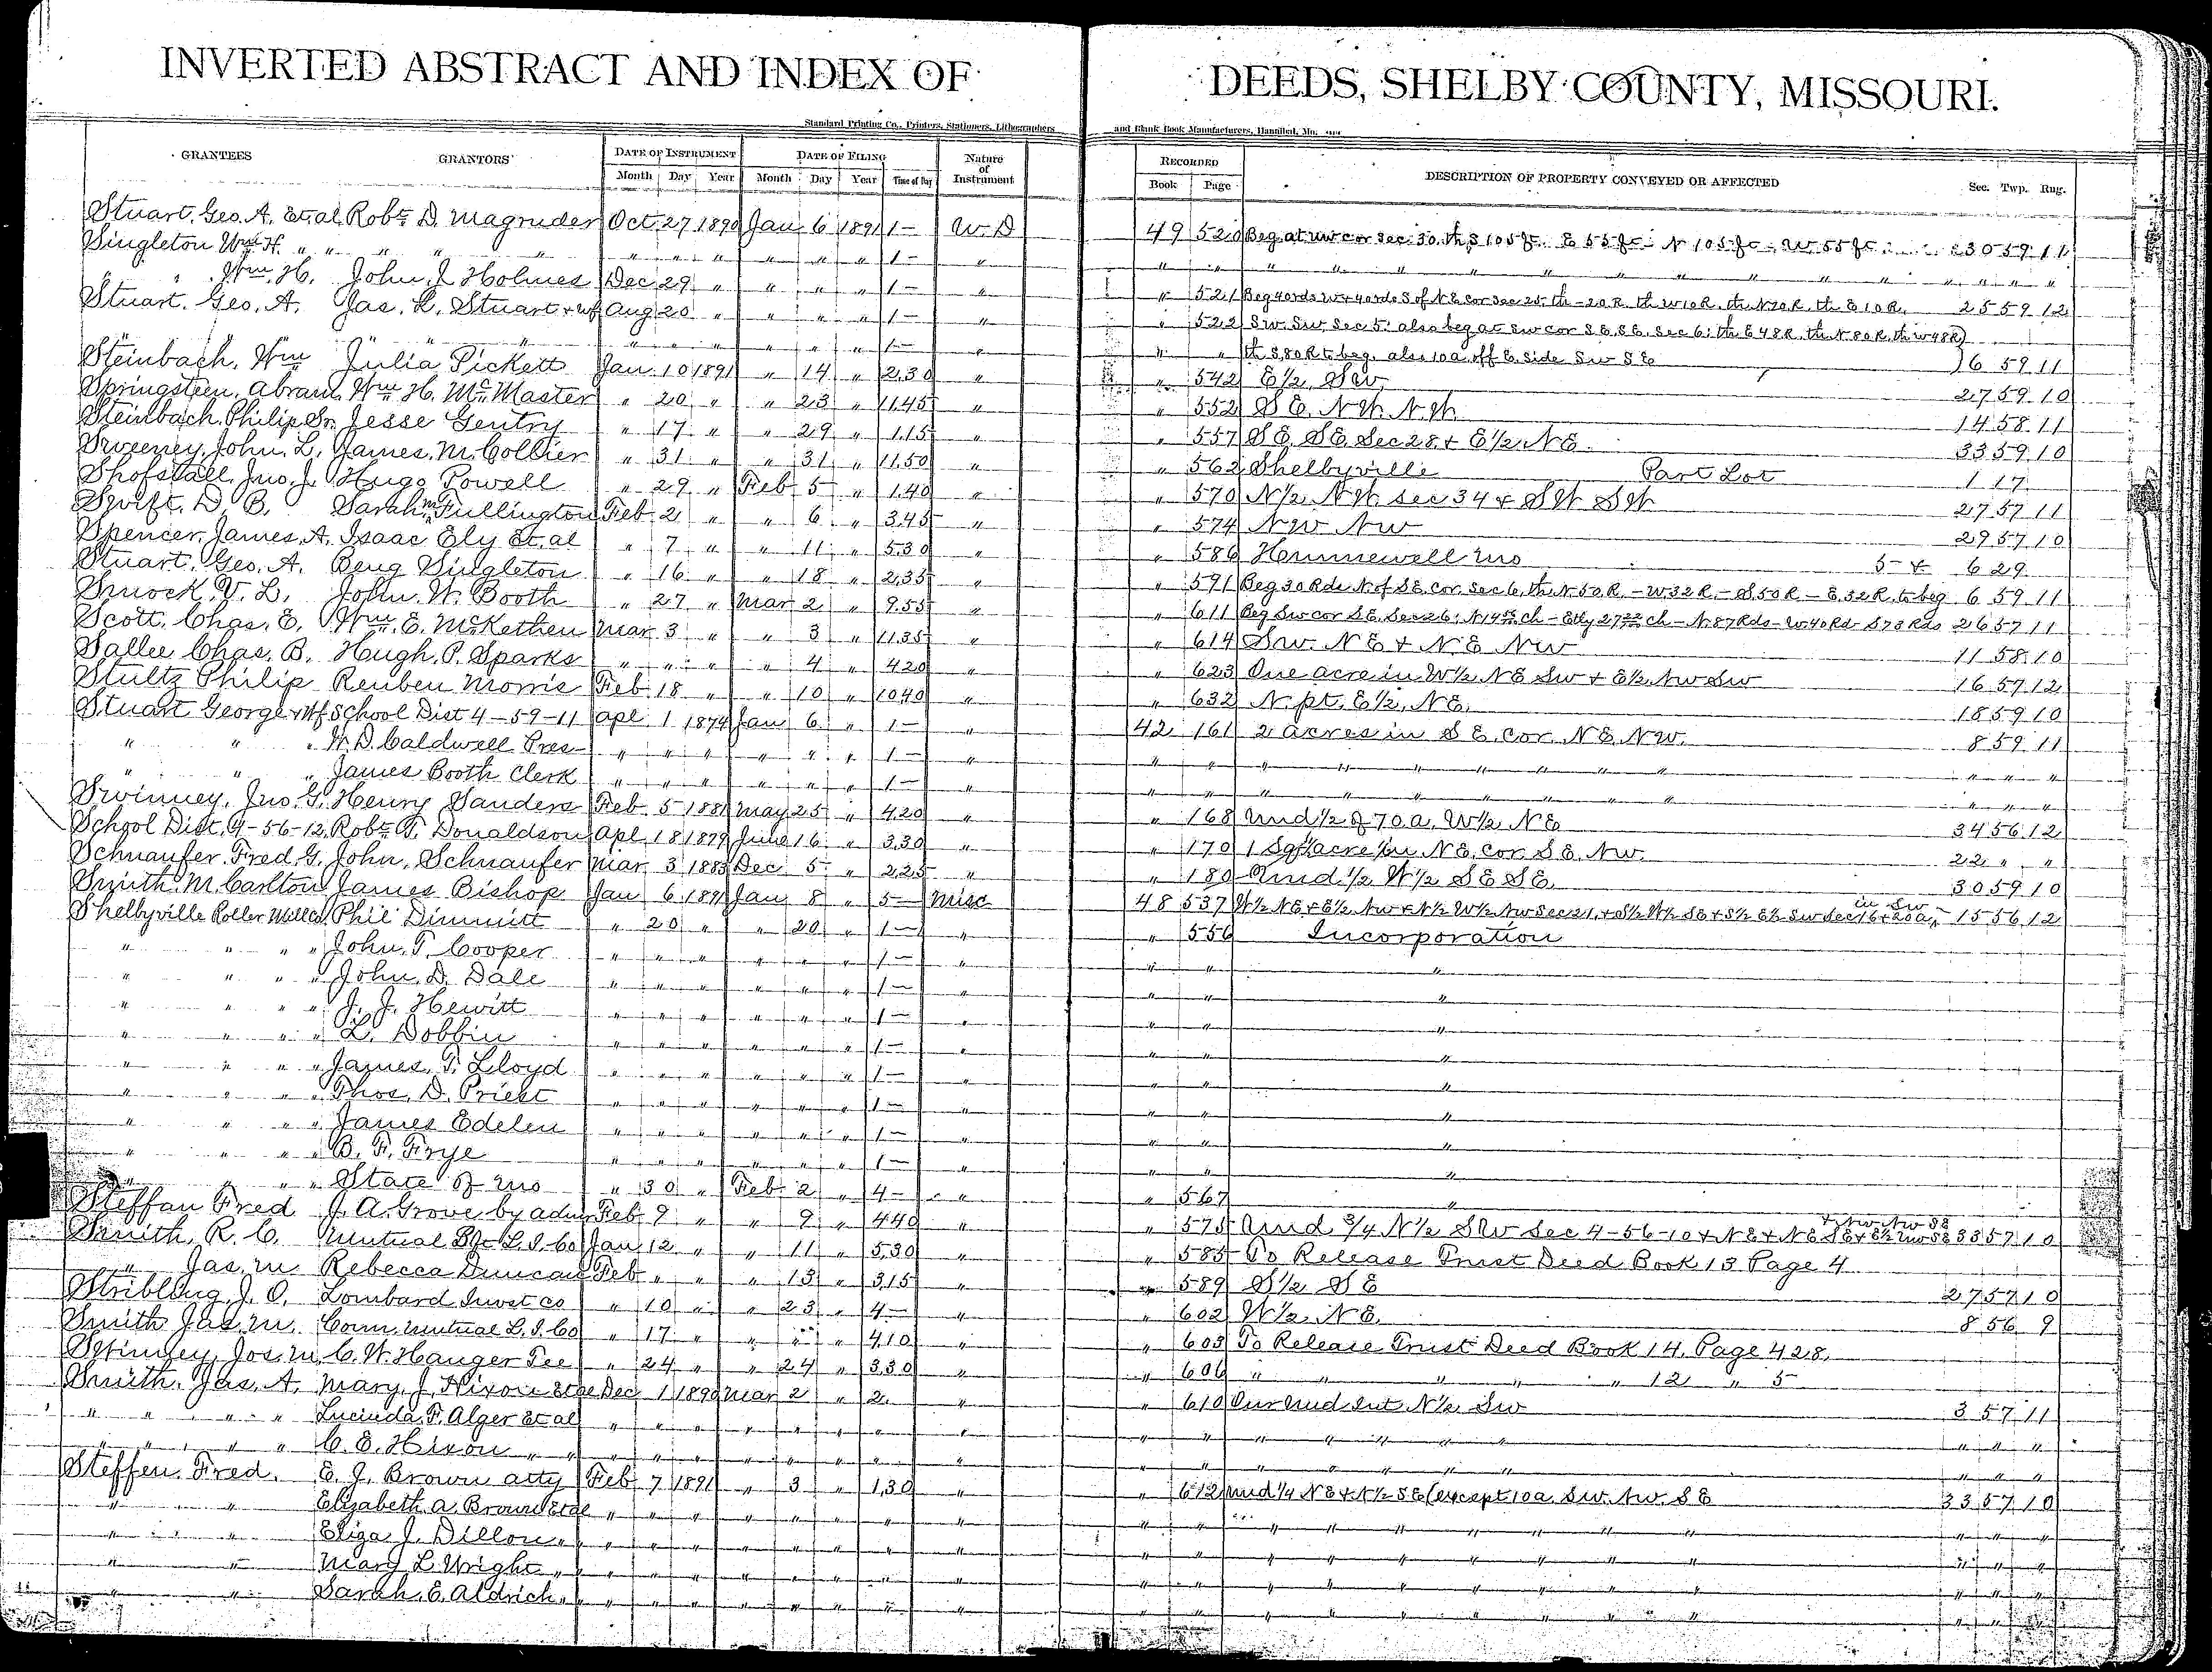 INVERTED ABSTRACT AND INDEX OF DEEDS, SHELBY COUNTY, MISSOURI.
Standard Printing Co., Printers, Stationers, Lithographers and Blank Book Manufacturers, Hannibal, Mo.
GRANTEES GRANTORS DATE OF INSTRUMENT DATE OF FILING Nature of Instrument RECORDED DESCRIPTION OF PROPERTY CONVEYED OR AFFECTED Sec. Twp. Rng.
Month Day Year Month Day Year Time of Day Book Page
Stuart, Geo. A. Et al Robt. D. Magruder Oct 27 1890 Jan 6 1891 1- W.D 49 520 Beg. at nw cor Sec. 30. th S 105 ft. E 55 ft. N 105 ft - W 55 ft. 30 59 11
Singleton Wm H. " " " " " " " " " " 1- " " " " " " " " " " " " " " "
" Wm. H. John J. Holmes Dec 29 " " " " 1- " " 521 Beg 40 rds W & 40 rds S of N E Cor Sec 25. th - 20 R. th W 10 R. th N 20 R. th E 10 R. 25 59 12
Stuart. Geo. A. Jas. L. Stuart & wf Aug 20 " " " " 1- " " 522 Sw. Sw. Sec 5. also beg at Sw cor S E. S E. Sec 6. th E 48 R. th N 80 R. th W 48 R)
" " " " " " " " " " 1- " " " th S. 80 R to beg. also 10 a. off E. side Sw S E ) 6 59 11
Steinbach, Wm Julia Pickett Jan 10 1891 " 14 " 2.30 " " 542 E½ SW 27 59 10
Springsteen, Abram. Wm H. McMaster " 20 " " 23 " 11.45 " " 552 S E. N W. N W. 14 58 11
Steinbach, Philip Sr. Jesse Gentry " 17 " " 29 " 1.15 " " 557 S E. S E. Sec 28 & E½ N E. 33 59 10
Sweeney, John. L. James. M. Collier " 31 " " 31 " 11.50 " " 562 Shelbyville Part Lot 1 17
Shofstall, Jno. J. Hugo Powell " 29 " Feb 5 " 1.40 " " 570 N½. N W. Sec 34 & S W S W 27 57 11
Swift. D. B. Sarah M. Fullington Feb 2 " " 6 " 3.45 " " 574 N W N W 29 57 10
Spencer, James. A. Isaac Ely Et. al " 7 " " 11 " 5.30 " " 586 Hunnewell Mo 5 & 6 29
Stuart. Geo. A. Benj Singleton " 16 " " 18 " 2.35 " " 591 Beg 30 Rds N. of S E. Cor. Sec 6. th N 50 R. - W 32 R. - S 50 R - E. 32 R. to beg 6 59 11
Smock. V. L. John. W. Booth " 27 " Mar 2 " 9.55 " " 611 Beg Sw cor S E. Sec 26: N 14 ch - Etly 27 ch - N. 87 Rds - W 40 Rd - S 78 Rds 26 57 11
Scott. Chas. E. Wm. E. McKethen Mar 3 " " 3 " 11.35 " " 614 Sw. N E & N. E N W 11 58 10
Sallee Chas. B. Hugh. P. Sparks " " " " 4 " 4.20 " " 623 One acre in W½ N E Sw & E½ Nw Sw 16 57 12
Stultz Philip Reuben Morris Feb 18 " " 10 " 10.40 " " 632 N. pt. E½. N E. 18 59 10
Stuart George & Wf School Dist 4-59-11 Apl 1 1874 Jan 6 " 1- " 42 161 2 Acres in S E. Cor. N E. N W. 8 59 11
" " " W. D. Caldwell Pres " " " " " " 1- " " " " " " " " " " " " "
" " " James Booth Clerk " " " " " " 1- " " " " " " " " " " " " "
Swinney, Jno. G. Henry Sanders Feb 5 1881 May 25 " 4.20 " " 168 Und ½ of 70 a. W½ N E 34 56 12
School Dist. 4-56-12. Robt. T. Donaldson Apl 18 1879 June 16 " 3.30 " " 170 1 Sq. acre in N E. cor. S E. N W. 22 " "
Schnaufer. Fred. G. John. Schnaufer Mar 3 1883 Dec 5 " 2.25 " " 180 Und. ½ W½ S E S E. 30 59 10
Smith. M. Carlton James Bishop Jan 6 1891 Jan 8 " 5- Misc 48 537 W½ N E & E½ Nw & N½ W½ Nw Sec 21. & S½ W½ S E & S½ E½ Sw Sec 16 & 20 a. in Sw 15 56 12
Shelbyville Roller Mill Co. Phil Dimmitt " 20 " " 20 " 1- " " 556 Incorporation
" " " " John. T. Cooper " " " " " " 1- " " " "
" " " " John. D. Dale " " " " " " 1- " " " "
" " " " J. J. Hewitt " " " " " " 1- " " " "
" " " " L. Dobbin " " " " " " 1- " " " "
" " " " James. T. Lloyd " " " " " " 1- " " " "
" " " " Thos. D. Priest " " " " " " 1- " " " "
" " " " James Edelen " " " " " " 1- " " " "
" " " " B. F. Frye " " " " " " 1- " " " "
" " " " State of Mo " 30 " Feb 2 " 4- " " 567 "
Steffan Fred J. A. Grove by adm Feb 9 " " 9 " 4.40 " " 575 Und 3/4 N½ S W Sec 4-56-10 & N E & N E S E & E½ Nw S E & Nw Nw S E 33 57 10
Smith, R. C. Mutual Bft L. I. Co Jan 12 " " 11 " 5.30 " " 585 To Release Trust Deed Book 13 Page 4
" Jas. M Rebecca Duncan Feb " " " 13 " 3.15 " " 589 S½ S E 27 57 10
Stribling. J. O. Lombard Invst Co " 10 " " 23 " 4- " " 602 W½. N E. 8 56 9
Smith Jas. M. Conn. Mutual L. I. Co " 17 " " " " 4.10 " " 603 To Release Trust Deed Book 14. Page 428.
Swinney, Jos. M. C. W. Hanger Tee " 24 " " 24 " 3.30 " " 606 " " " " 12 " 5
Smith. Jas. A. Mary. J. Hixon Et al Dec 1 1890 Mar 2 " 2. " " 610 Our Und Int N½ Sw 3 57 11
" " " " Lucinda. F. Alger Et al " " " " " " " " " " " " " " " " " "
" " " " C. E. Hixon " " " " " " " " " " " " " " " " " " " "
Steffen. Fred. E. J. Brown atty Feb 7 1891 " 3 " 1.30 " " 612 Und ¼ N E & N½ S E (except 10 a. Sw. Nw. S E 33 57 10
" " Elizabeth A. Brown Et al " " " " " " " " " " " " " " " " " " "
" " Eliza J. Dillon " " " " " " " " " " " " " " " " " " " "
" " Mary L. Wright " " " " " " " " " " " " " " " " " " " "
" " Sarah. E. Aldrich " " " " " " " " " " " " " " " " " " " "